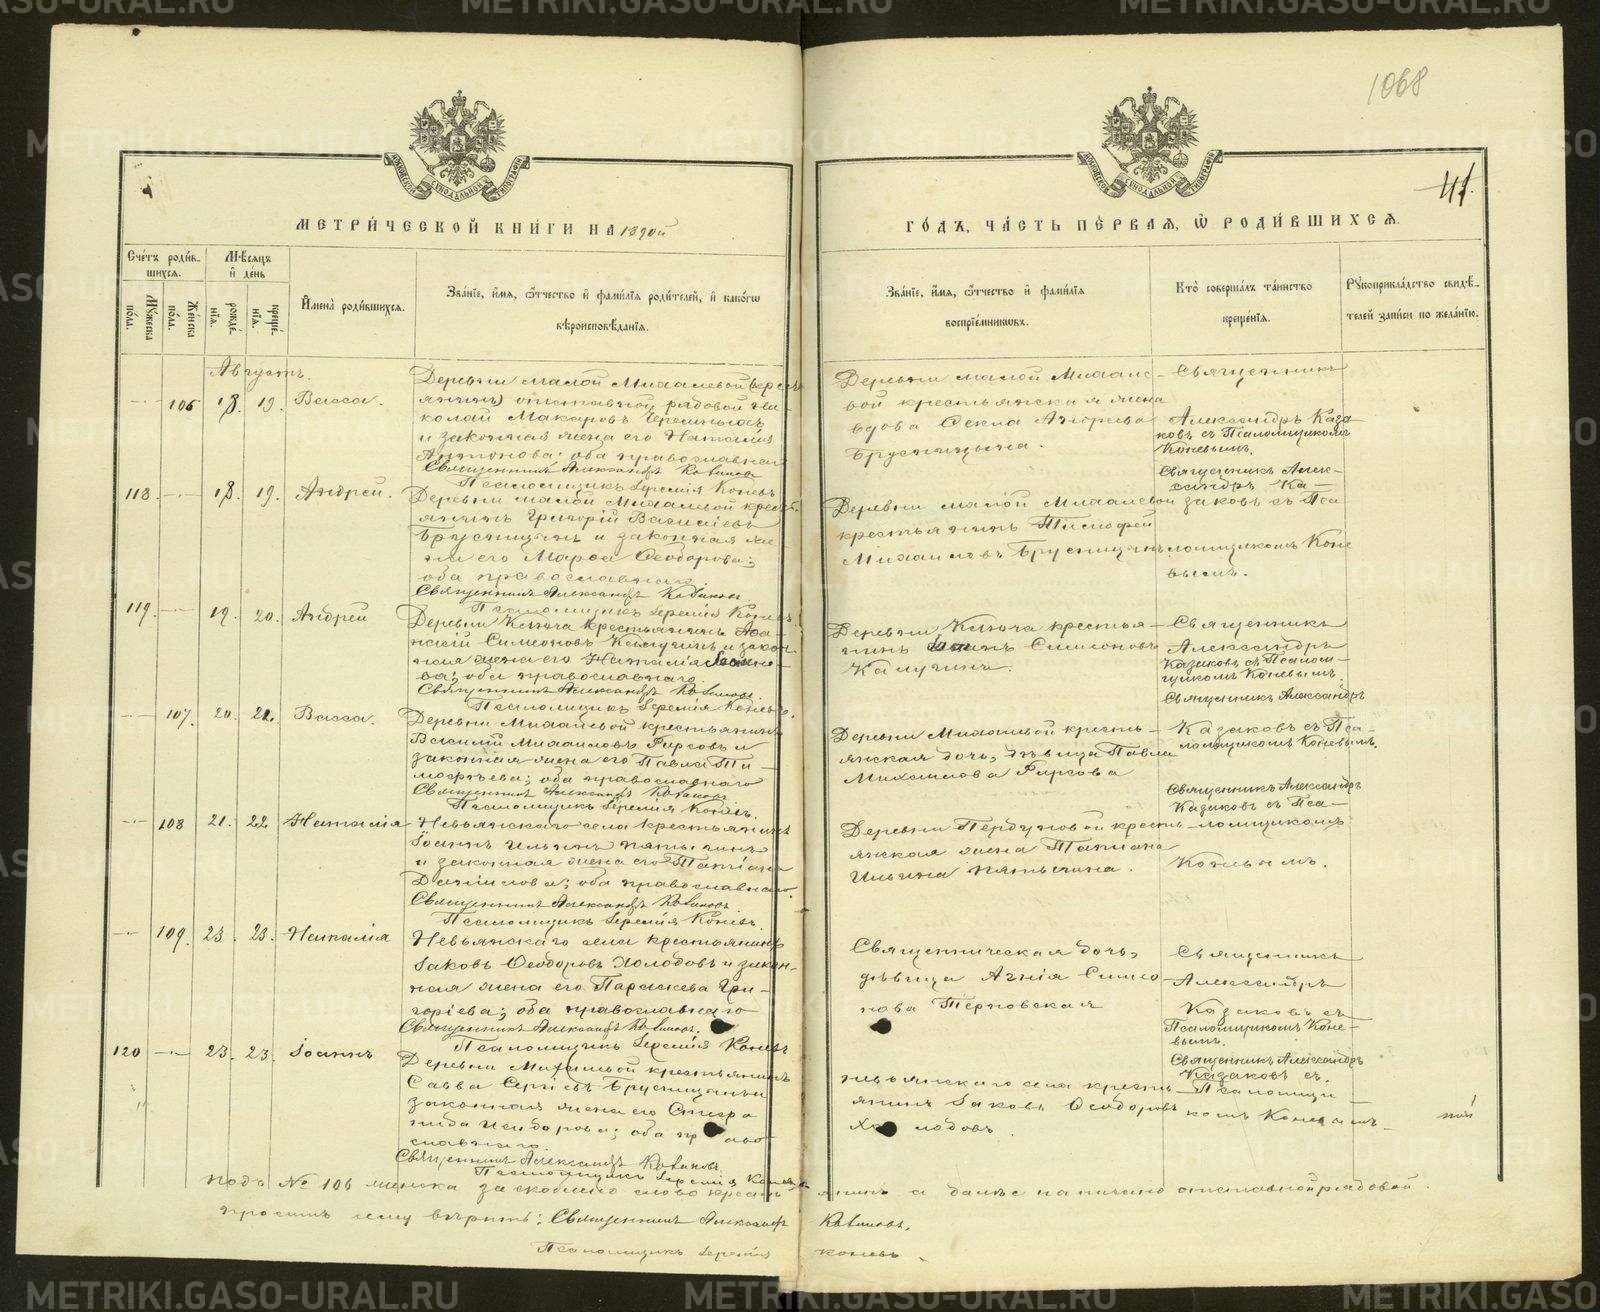 1068
41.
МЕТРИ́ЧЕСКОЙ КНИ́ГИ НА 1890й
ГО́ДЪ, ЧА́СТЬ ПЕ́РВАЯ, Ѡ҆ РОДИ́ВШИХСЯ.
Сче́тъ роди́в-
шихся.
Мѣ́сяцъ
и҆ де́нь
Му́жеска по́ла.
Же́нска по́ла.
рожде́-
нїя.
креще́-
нїя.
И҆мена̀ роди́вшихся.
Зва́нїе, и҆́мя, ѻ҆́тчество и҆ фами́лїя роди́телей, и҆ како́гѡ
вѣроисповѣ́данїя.
Зва́нїе, и҆́мя, ѻ҆́тчество и҆ фами́лїя
воспрїе́мникѡвъ.
Кто̀ соверша́лъ та́инство
креще́нїя.
Рꙋкоприкла́дство свидѣ́-
телей за́писи по жела́нїю.
Августъ.
106 18. 19. Васса.
Деревни малой Михалевой (крестъ
янинъ) отставной рядовой Ни-
колай Макаровъ
и законная жена его Наталия
Антонова; оба православнаго
Священникъ Александръ Казаковъ
Псаломщикъ Іеремія Коневъ
Деревни малой Михале-
вой крестьянская жена
вдова Ѳекла Андреева
Брусницына.
Священникъ
Александръ Каза-
ковъ съ Псаломщикомъ
Коневымъ.
118. 18. 19. Андрей.
Деревни малой Михалевой крест
янинъ Григорій Василіевъ
Брусницынъ и законная же-
на его Марѳа Ѳеодорова;
оба православнаго.
Священникъ Александръ Казаковъ.
Псаломщикъ Іеремія Коневъ.
Деревни малой Михалевой
крестьянинъ Тимофей
Михаиловъ Брусницынъ
Священникъ Алек-
сандръ Ка-
заковъ съ Пса
ломщикомъ Коне
вымъ.
119. 19. 20. Андрей
Деревни Ключа крестьянинъ Аѳа-
насій Симеоновъ Калугинъ и закон
ная жена его Наталія
ва; оба православнаго.
Священникъ Александръ Казаковъ.
Псаломщикъ Іеремія Коневъ.
Деревни Ключа крестья-
нинъ Симеоновъ
Калугинъ.
Священникъ
Александръ
Казаковъ съ Псалом-
щикомъ Коневымъ.
107. 20. 21. Васса.
Деревни Михалевой крестьянинъ
Василій Михаиловъ Фирсовъ и
законная жена его Павла Ти-
моѳѣева; оба православнаго
Священникъ Александръ Казаковъ
Псаломщикъ Іеремія Коневъ.
Деревни Михалевой кресть-
янская дочь, дѣвица Павла
Михаилова Фирсова
Священникъ Александръ
Казаковъ съ Пса-
ломщикомъ Коневымъ.
108 21. 22. Наталія
Невьянскаго села крестьянинъ
Іоаннъ Ильинъ Пятыгинъ
и законная жена его Татіана
Даніилова; оба православнаго.
Священникъ Александръ Казаковъ
Псаломщикъ Іеремія Коневъ.
Деревни Пердуновой кресть-
янская жена Татіана
Ильина Пятыгина.
Священникъ Александръ
Казаковъ съ Пса-
ломщикомъ
Коневымъ.
109. 23. 23. Наталія
Невьянскаго села крестьянинъ
Іаковъ Ѳеодоровъ Холодовъ и закон-
ная жена его Параскева Гри-
горіева; оба православнаго
Священникъ Александръ Казаковъ.
Псаломщикъ Іеремія Коневъ
Священническая дочь,
дѣвица Агнія Симео
нова Терновская
Священникъ
Александръ
Казаковъ съ
Псаломщикомъ Коне-
вымъ.
120 23. 23. Іоаннъ
Деревни Михалевой крестьянинъ
Савва Сергіевъ Брусницынъ и
законная жена его Стефа
нида Исидорова; оба право
славнаго.
Священникъ Александръ Казаковъ.
Псаломщикъ Іеремія Коневъ
Невьянскаго села кресть
янинъ Іаковъ Ѳеодоровъ
Холодовъ.
Священникъ Александръ
Казаковъ съ
Псаломщи-
комъ Коневымъ.
подъ № 106 женска заскоблено слово крестьянинъ а далѣе написано отставной рядовой.
просимъ сему вѣрить: Священникъ Александръ Казаковъ.
Псаломщикъ Іеремія Коневъ.
METRIKI.GASO-URAL.RU